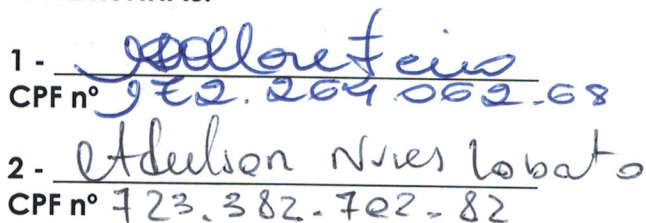 1 -
CPF nº 972.264.062-68
2 - Adeilson Nunes Lobato
CPF nº 723.382.702-82